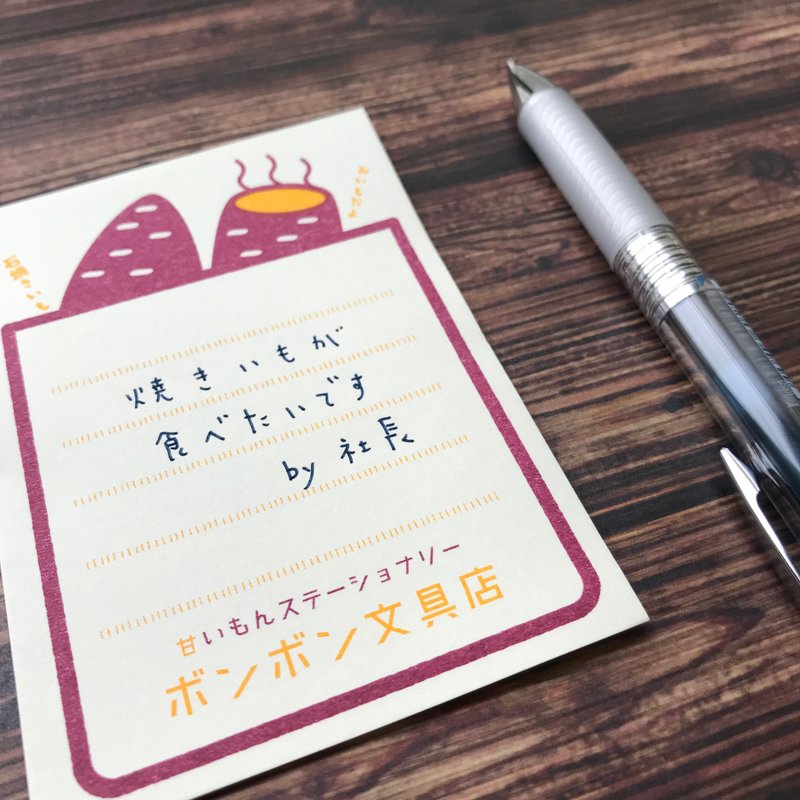 石焼きいも
焼きいもが
食べたいです
by 社長
甘いもんステーショナリー
ボンボン文具店